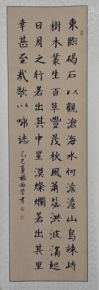 東臨碣石以觀滄海水何澹澹山島竦峙
樹木叢生百草豐茂秋風蕭瑟洪波湧起
日月之行若出其中星漢燦爛若出其里
幸甚至哉歌以詠志